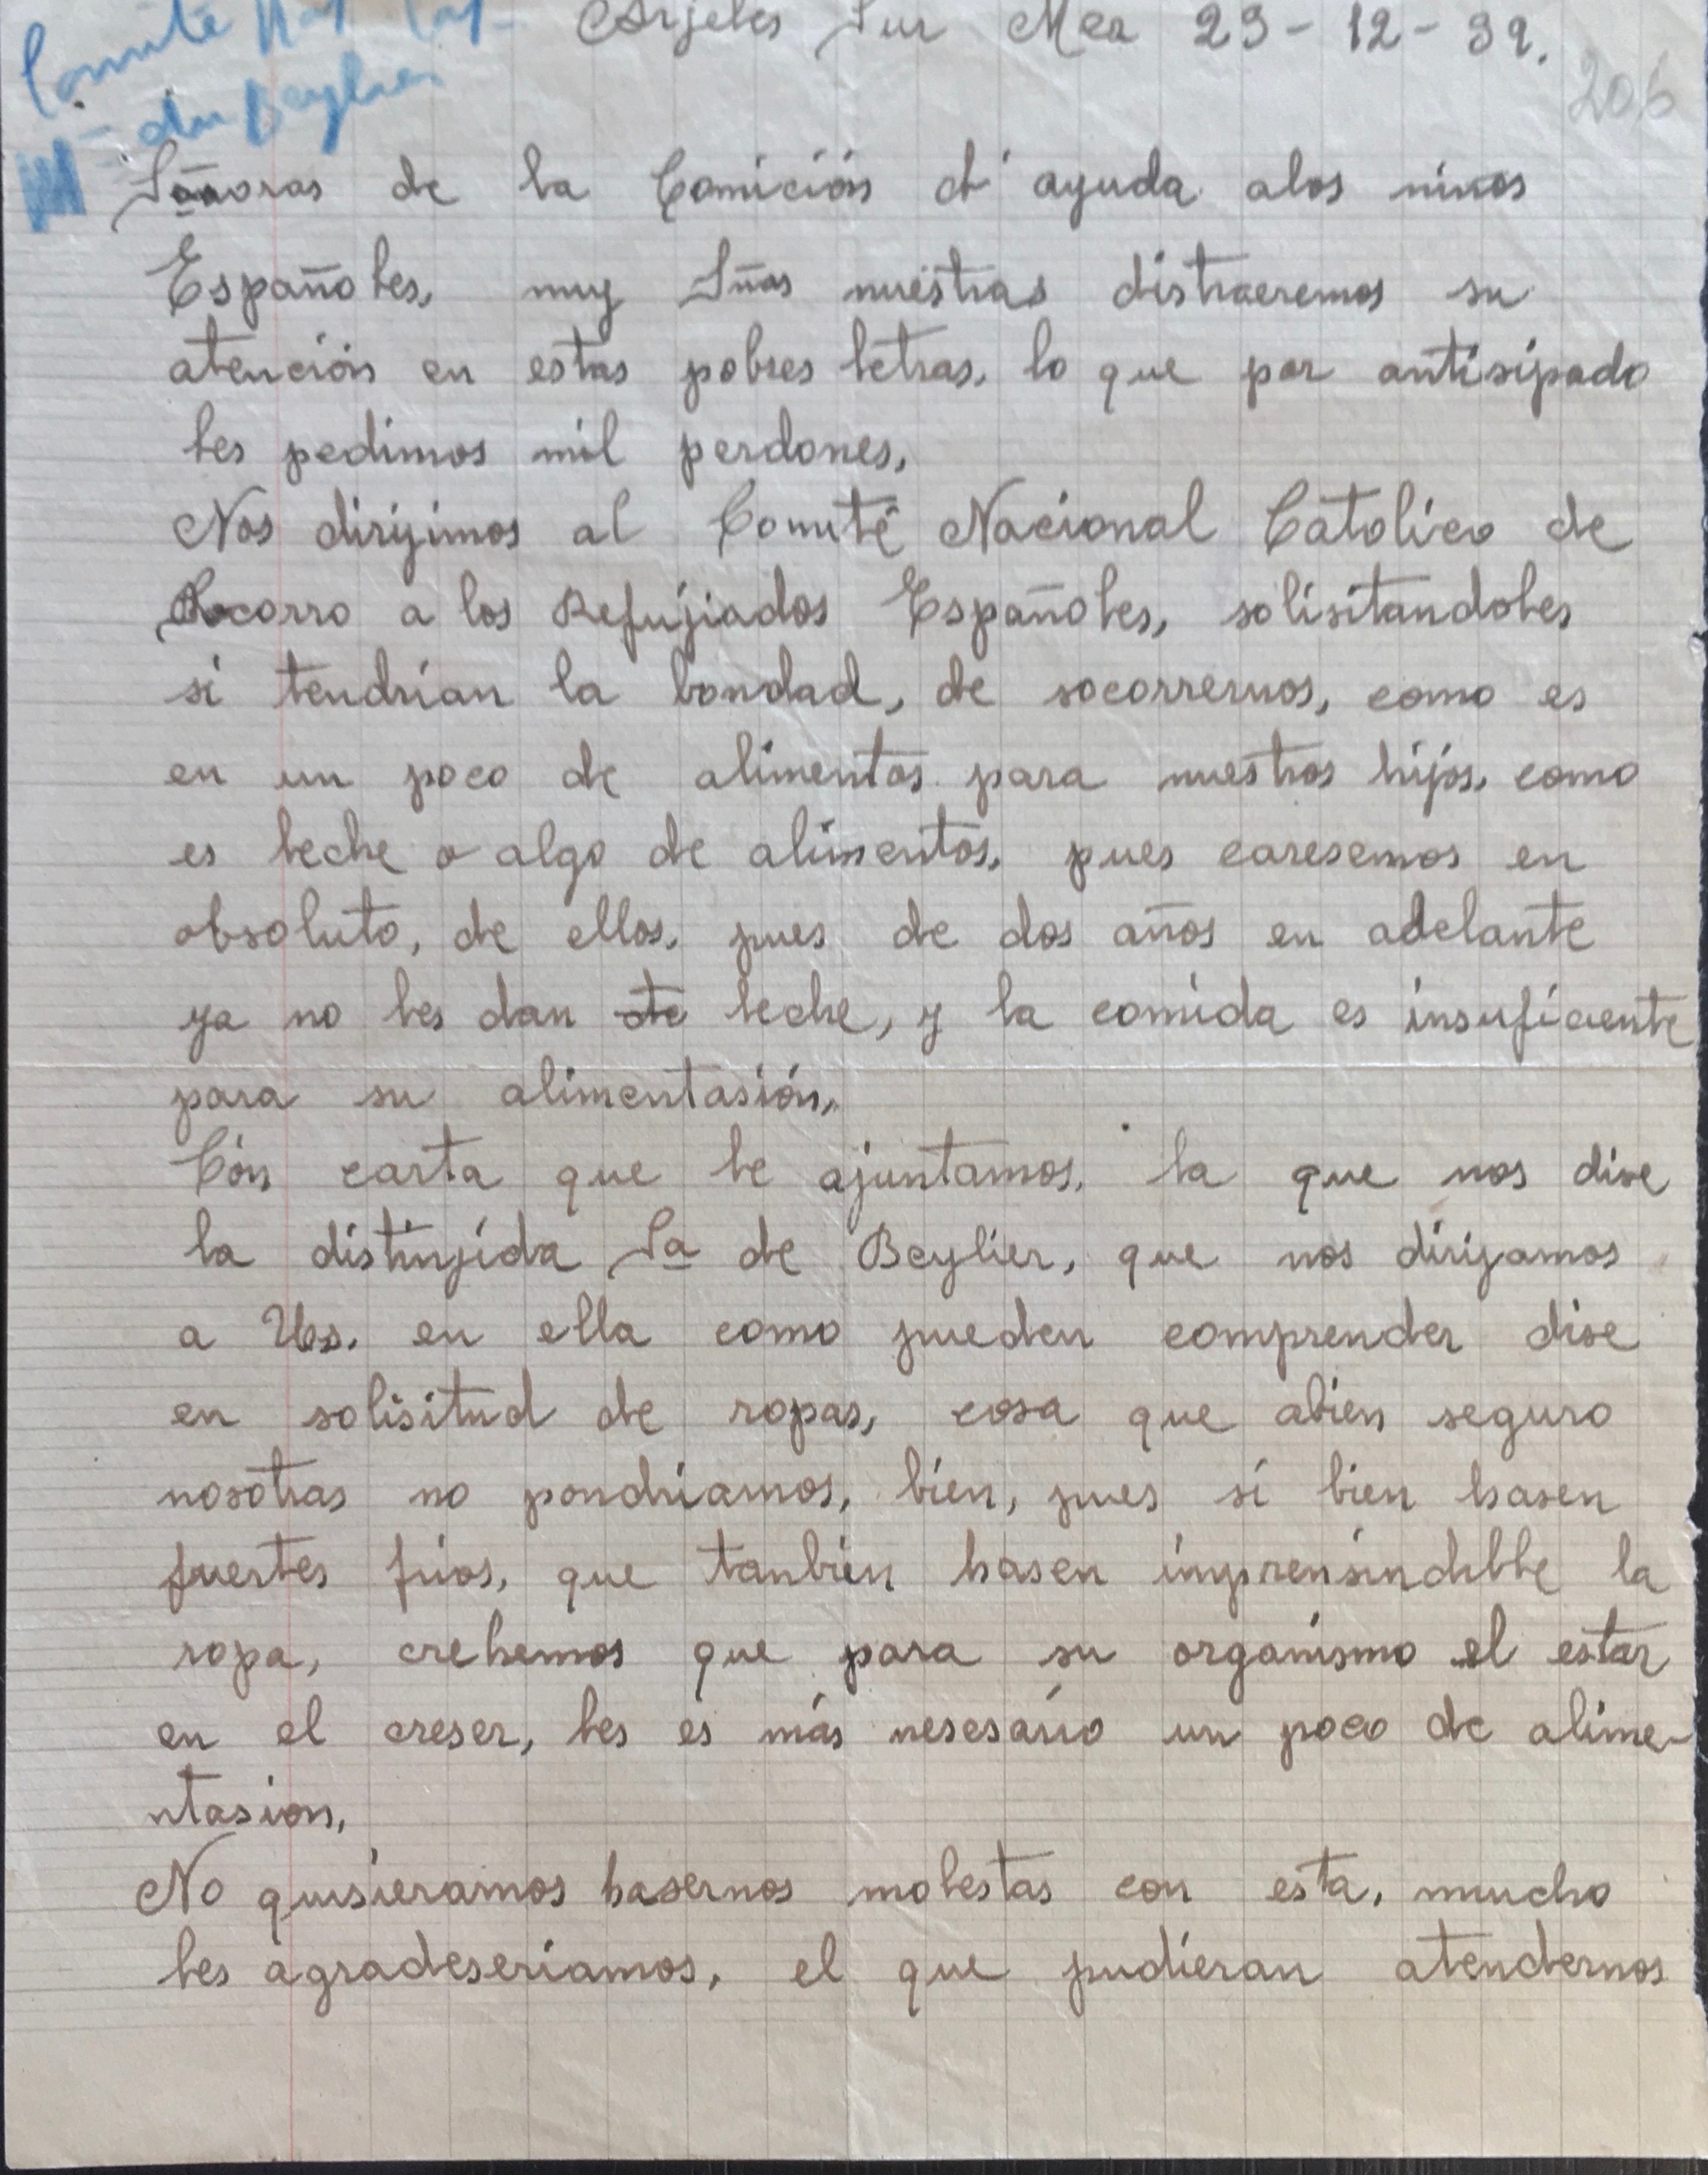 Comité Nat Cat
Arjeles Sur Mer 23-12-39.
206
de Beylier
Señoras de la Comición d'ayuda alos niños
Españoles, muy Sñas nuestras distraeremos su
atención en estas pobres letras, lo que por antisipado
les pedimos mil perdones,
Nos dirijimos al Comité Nacional Catolico de
Socorro a los Refujiados Españoles, solisitandoles
si tendrían la bondad, de socorrernos, como es
en un poco de alimentos para nuestros hijos, como
es leche o algo de alimentos, pues caresemos en
absoluto, de ellos, pues de dos años en adelante
ya no les dan de leche, y la comida es insuficiente
para su alimentasión,
Cón carta que le ajuntamos, la que nos dise
la distinjida Sa de Beylier, que nos dirijamos
a Uds. en ella como pueden comprender dise
en solisitud de ropas, cosa que abien seguro
nosotras no pondriamos, bien, pues si bien hasen
fuertes frios, que tanbien hasen imprensindible la
ropa, crehemos que para su organismo el estar
en el creser, les es más nesesario un poco de alime-
ntasion,
No quisieramos hasernos molestas con esta, mucho
les agradeseriamos, el que pudieran atendernos